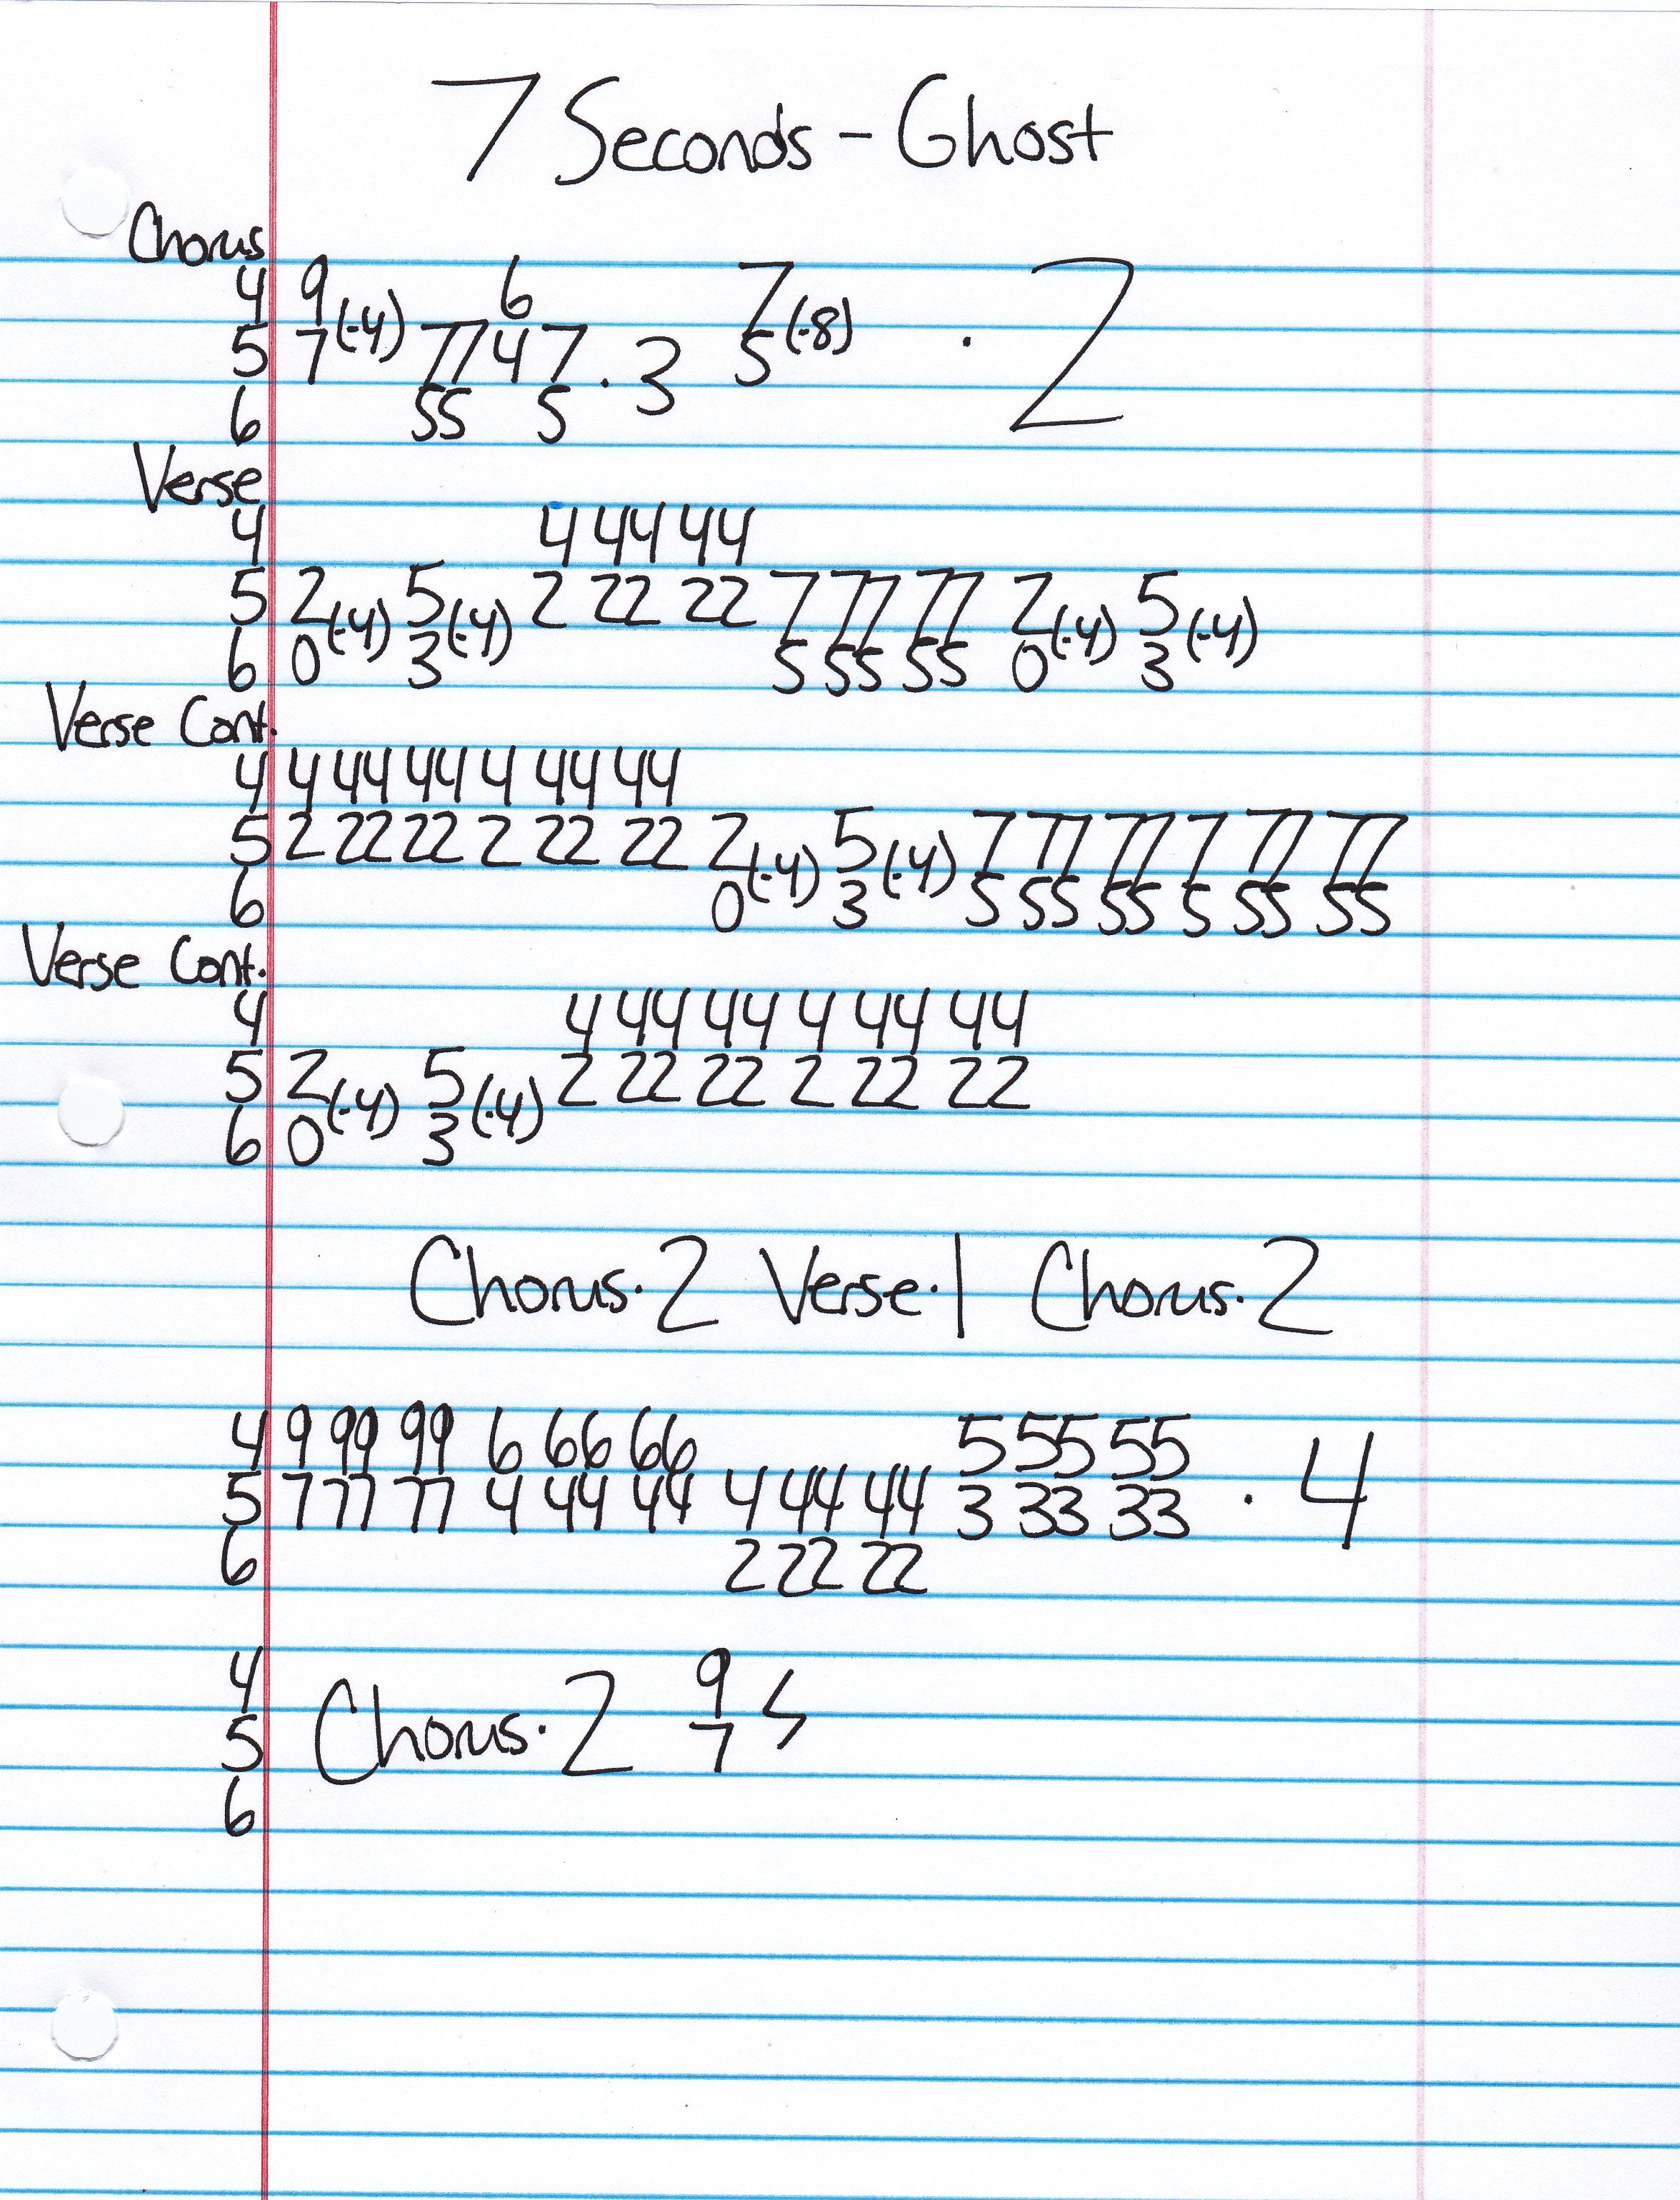 7 Seconds - Ghost
Chorus
4 9 6 7
5 7 (·4) 77 4 7 · 3 5 (·8) · 2
6 55 5
Verse
4 4 44 44
5 2 (·4) 5 (·4) 2 22 22 7 77 77 2 (·4) 5 (·4)
6 0 3 5 55 55 0 3
Verse Cont.
4 4 44 44 4 44 44
5 2 22 22 2 22 22 2 (·4) 5 (·4) 7 77 77 7 77 77
6 0 3 5 55 55 5 55 55
Verse Cont.
4 4 44 44 4 44 44
5 2 (·4) 5 (·4) 2 22 22 2 22 22
6 0 3
Chorus·2 Verse·1 Chorus·2
4 9 99 99 6 66 66 5 55 55
5 7 77 77 4 44 44 4 44 44 3 33 33 · 4
6 2 22 22
4 9
5 Chorus·2 7
6